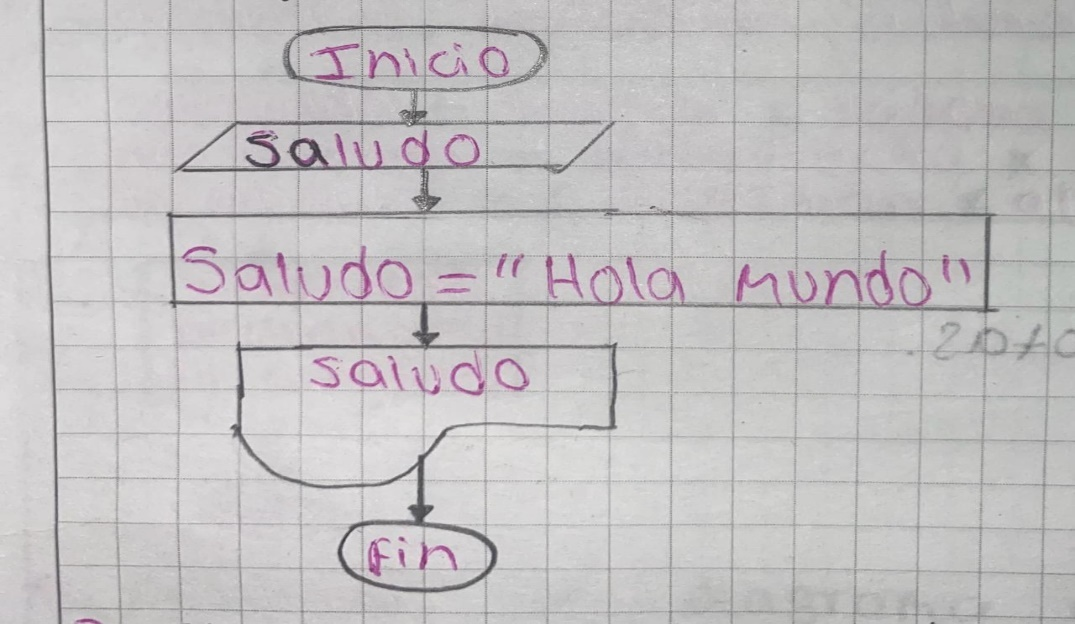 Inicio
Saludo
Saludo = "Hola mundo"
Saludo
Fin